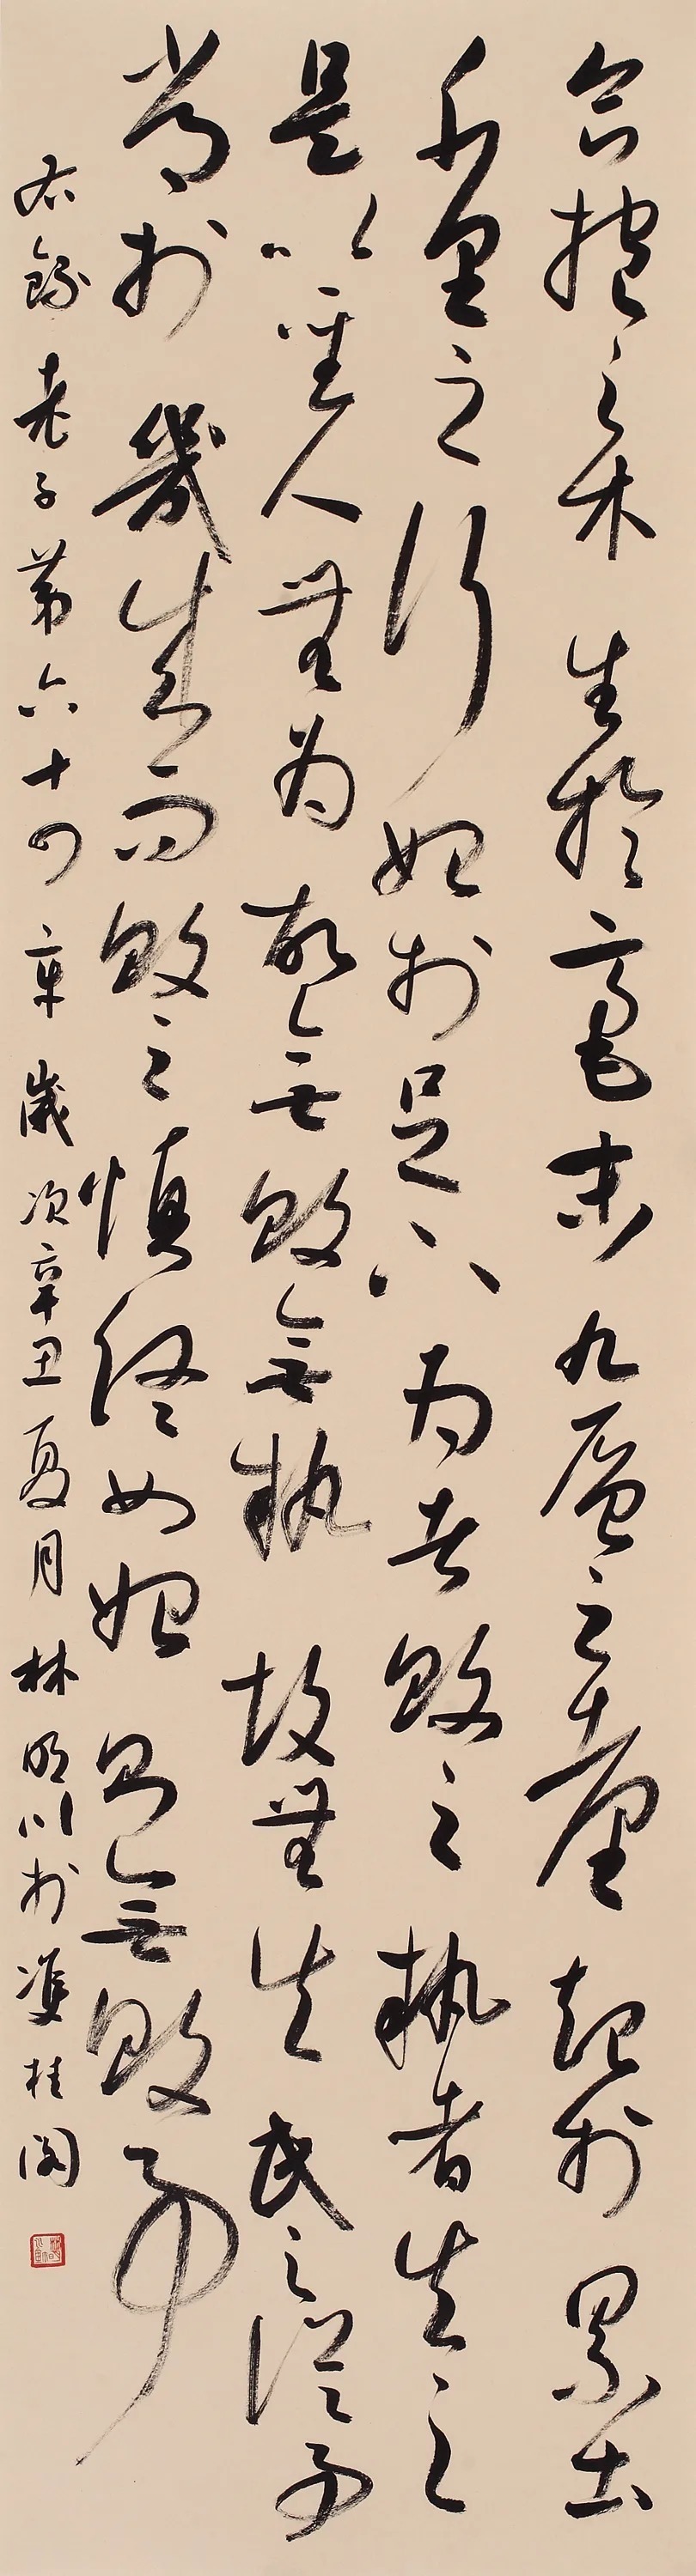 合抱之木生於毫末九層之臺起於累土
千里之行始於足下為者敗之執者失之
是以聖人無為故無敗無執故無失民之從事
常於幾成而敗之慎終如始則無敗事
右錄老子第六十四章歲次辛丑夏月林明川於雙桂閣